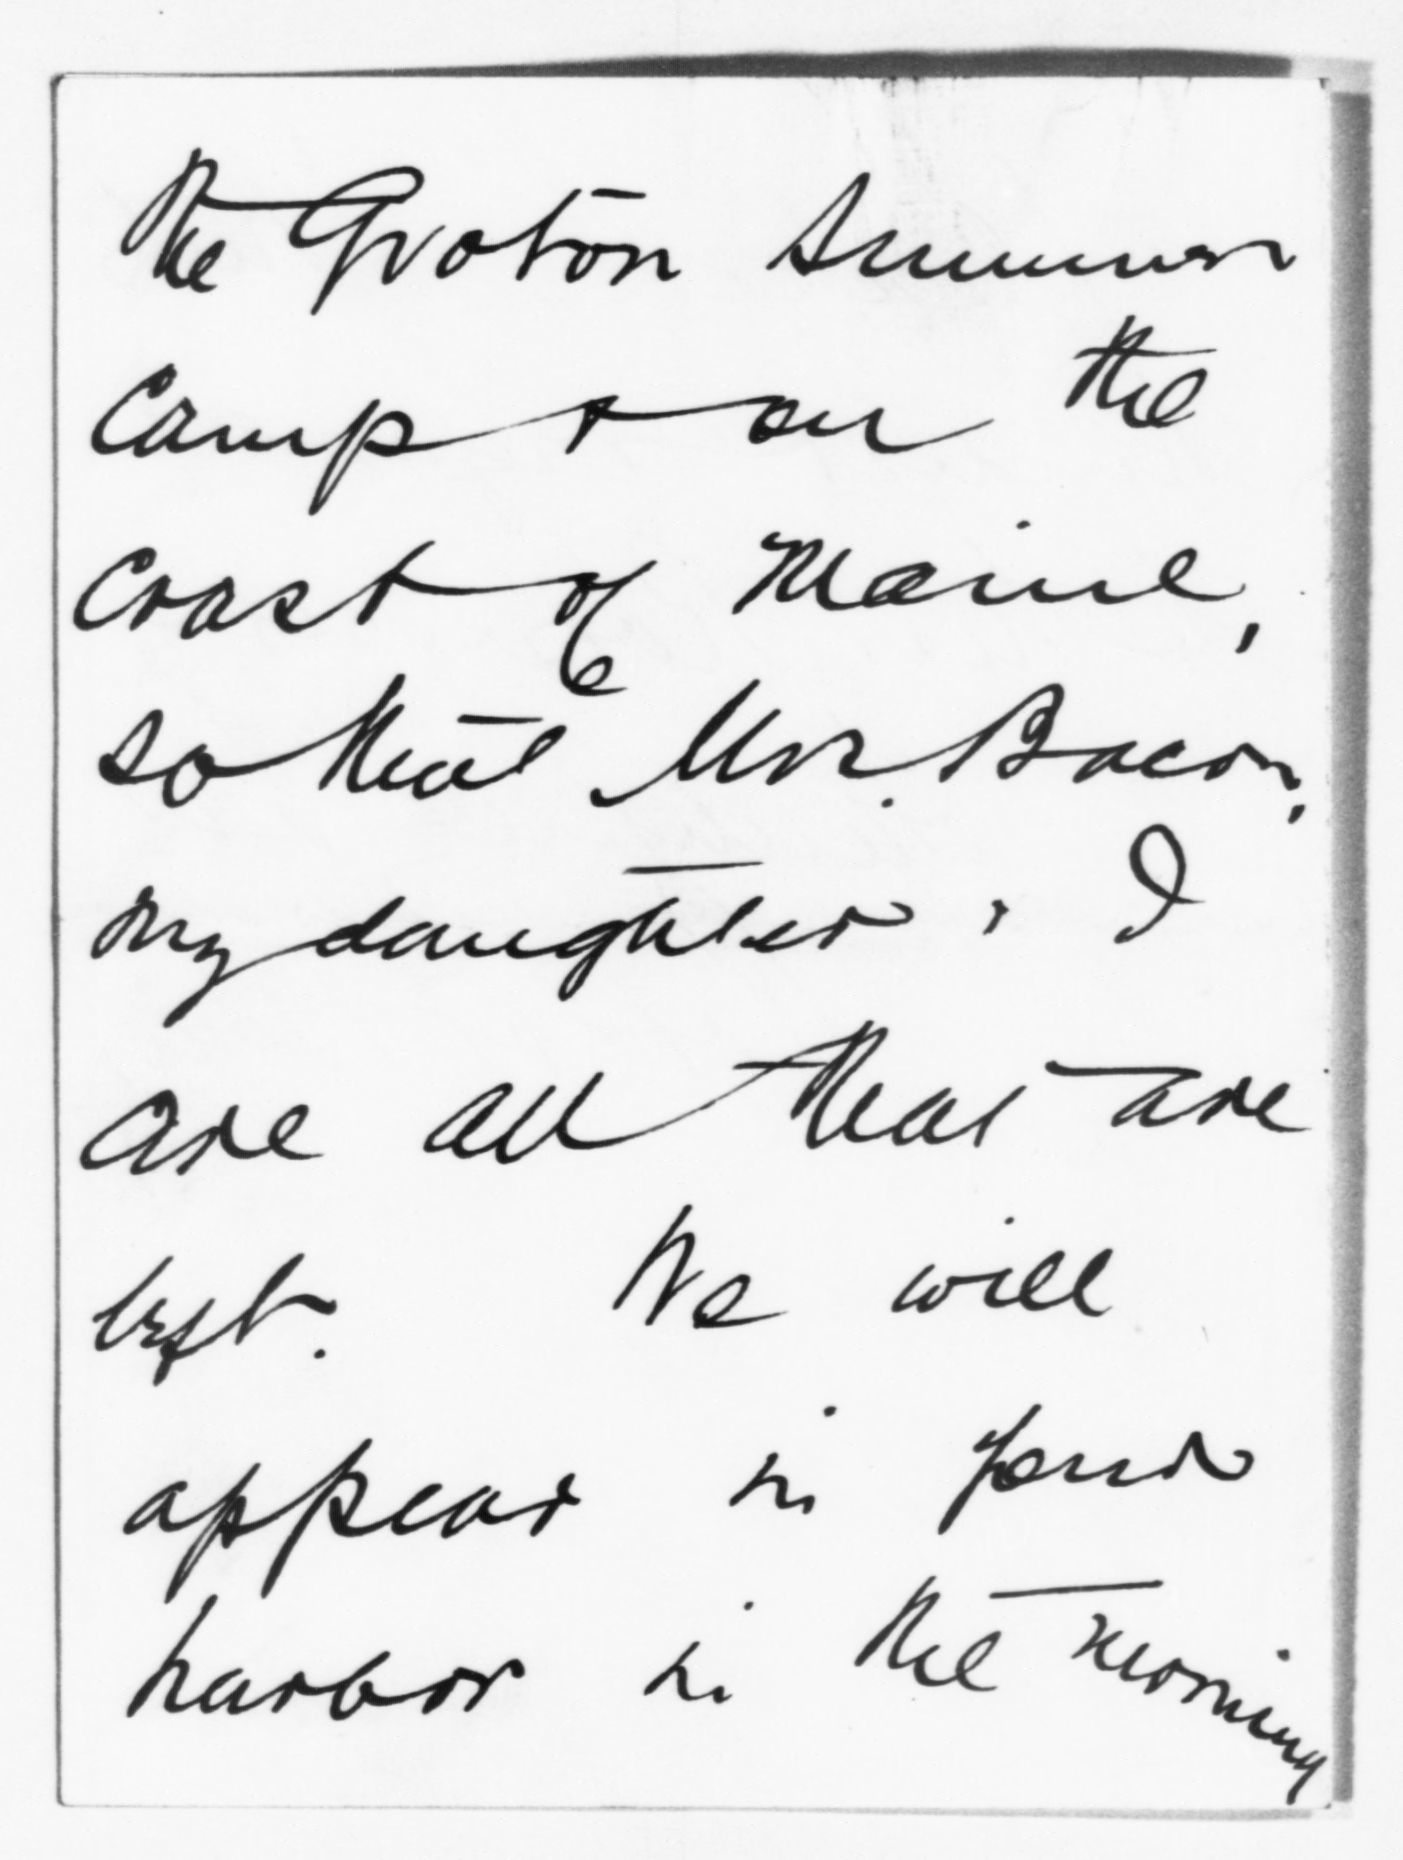 the Groton Summer
Camp & on the
Coast of Maine,
so that Mr. Bacon,
my daughter & I
are all that are
left. We will
appear in your
harbor in the morning